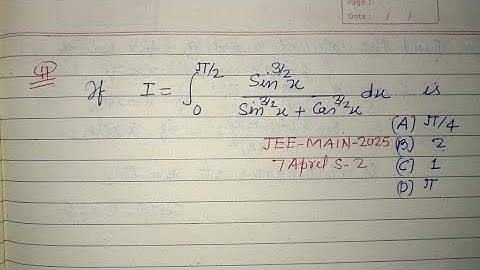 Page :
Date : / /
11) If I = ∫₀^(π/2) Sin^(3/2)x / (Sin^(3/2)x + Cos^(3/2)x) dx is
(A) π/4
JEE-MAIN-2025 (B) 2
7 Aprel S-2 (C) 1
(D) π